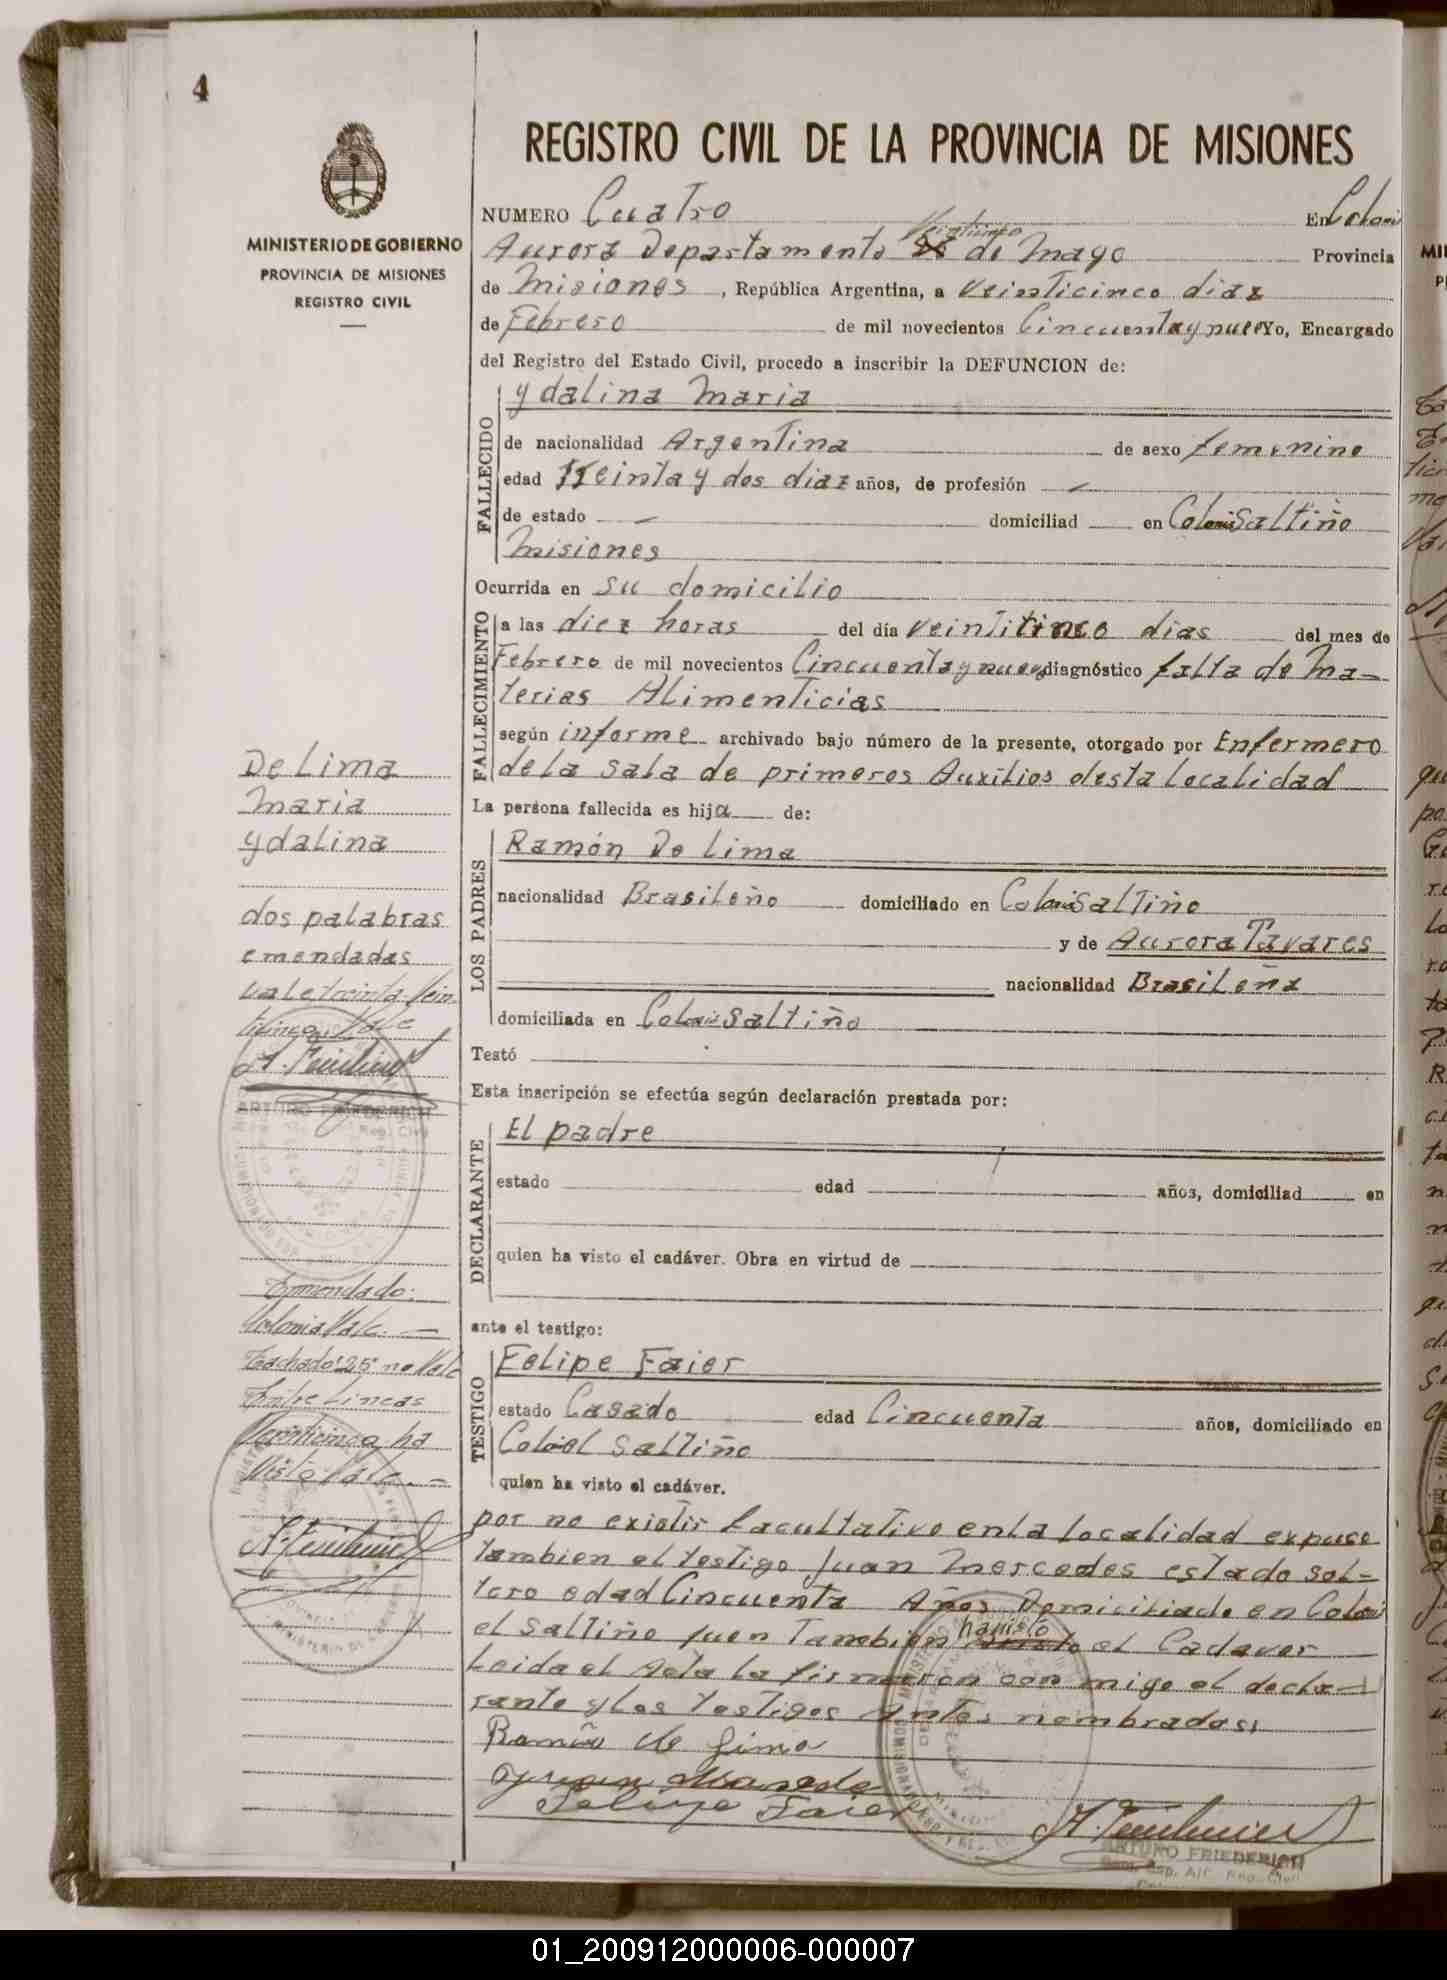 4
MINISTERIO DE GOBIERNO
PROVINCIA DE MISIONES
REGISTRO CIVIL
REGISTRO CIVIL DE LA PROVINCIA DE MISIONES
NUMERO Cuatro En Coloni
Veinticinco
Aurora Departamento 25 de Mayo Provincia
de Misiones, República Argentina, a Veinticinco dias
de Febrero de mil novecientos Cincuenta y nueve Yo, Encargado
del Registro del Estado Civil, procedo a inscribir la DEFUNCION de:
FALLECIDO
Ydalina Maria
de nacionalidad Argentina de sexo femenino
edad Treinta y dos dias años, de profesión -
de estado - domiciliad en Colonia Saltiño
Misiones
Ocurrida en su domicilio
FALLECIMIENTO
a las diez horas del día veinticinco dias del mes de
Febrero de mil novecientos Cincuenta y nueve diagnóstico falta de Ma-
terias Alimenticias
según informe archivado bajo número de la presente, otorgado por Enfermero
de la Sala de primeros Auxilios desta Localidad
La persona fallecida es hija de:
LOS PADRES
Ramón De Lima
nacionalidad Brasileño domiciliado en Colonia Saltiño
y de Aurora Tavares
nacionalidad Brasileña
domiciliada en Colonia Saltiño
Testó
Esta inscripción se efectúa según declaración prestada por:
DECLARANTE
El padre
estado edad años, domiciliad en
quien ha visto el cadáver. Obra en virtud de
ante el testigo:
TESTIGO
Felipe Faier
estado Casado edad Cincuenta años, domiciliado en
Colo el Saltiño
quien ha visto el cadáver.
por no existir facultativo en la localidad expuso
tambien el testigo Juan Mercedes estado sol-
tero edad Cincuenta Años Domiciliado en Coloni
ha visto
el Saltiño quen Tambien el Cadaver
Leida el Acta La firmaron con migo el decla-
rante y Los testigos Antes nombrados
Ramão de Lima
Felipe Faier
ARTURO FRIEDERICH
De Lima
Maria
Ydalina
dos palabras
emendadas
vale treinta Vein
ticinco Vale
ARTURO FRIEDERICH
Enmendado:
Colonia Vale. -
Tachado: 25 no Vale
Entre Lineas
Veinticinco ha
Visto Vale. -
01_200912000006-000007